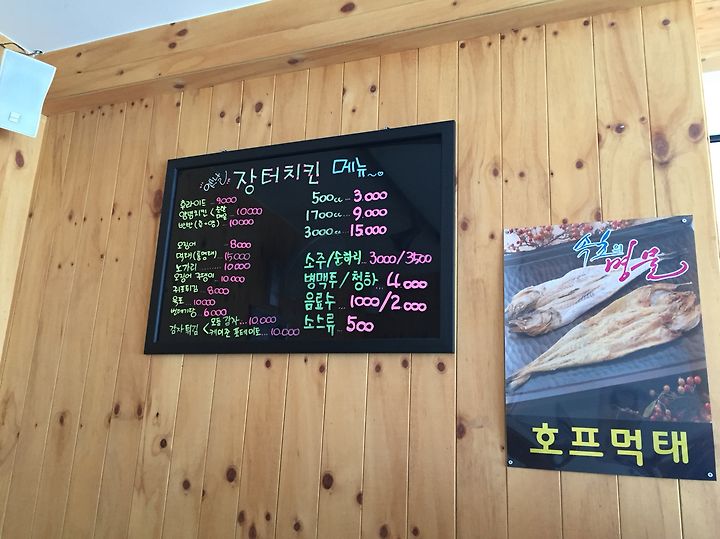 장터치킨 메뉴
후라이드 - 9000
양념치킨 < 순살 매운 .. 10.000
반반(후+양) .. 10.000
오징어 ... 8000
먹태(통명태) 15000
노가리 ........ 10000
오징어 구댕이 .. 10000
쥐포튀김 8000
육포 10000
번데기탕 6000
감자튀김 < 모둠감자 ... 10.000
케이준 포테이토 .. 10.000
500cc ... 3.000
1700cc ... 9.000
3000cc .. 15000
소주/순하리 .. 3000/3500
병맥주/청하 ... 4000
음료수 .. 1000/2000
소스류 500
속초의
명물
호프먹태